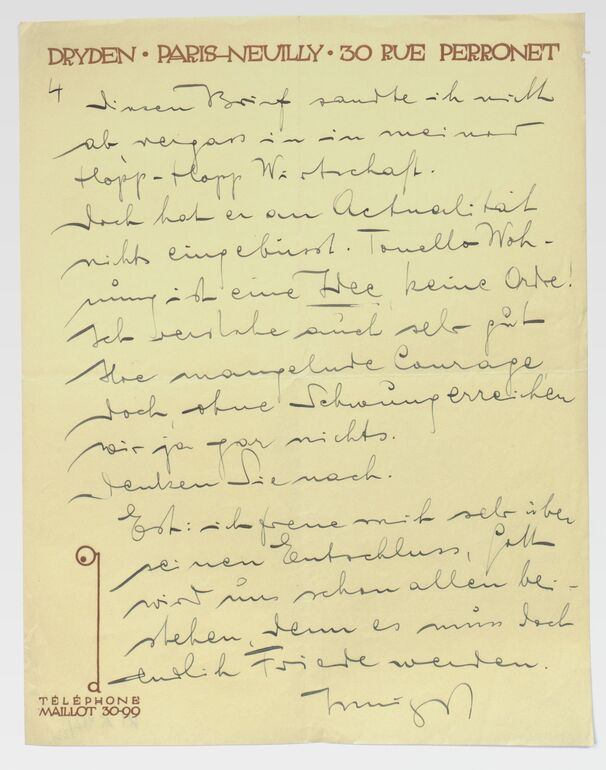 DRYDEN • PARIS-NEUILLY • 30 RUE PERRONET
4
diesen Brief sandte ich nicht
ab vergass in in meiner
Hopp-Hopp Wirtschaft.
Doch hat er an Actualität
nichts eingebüsst. Tonello Woh-
nung ist eine Idee, keine Ordre!
Ich verstehe auch sehr gut
Ihre mangelnde Courage,
doch, ohne Schwung erreichen
wir ja gar nichts.
Denken Sie nach.
Est: ich freue mich sehr über
seinen Entschluss, Gott
wird uns schon allen bei-
stehen, denn es muss doch
endlich Friede werden.
TÉLÉPHONE
MAILLOT 30-99